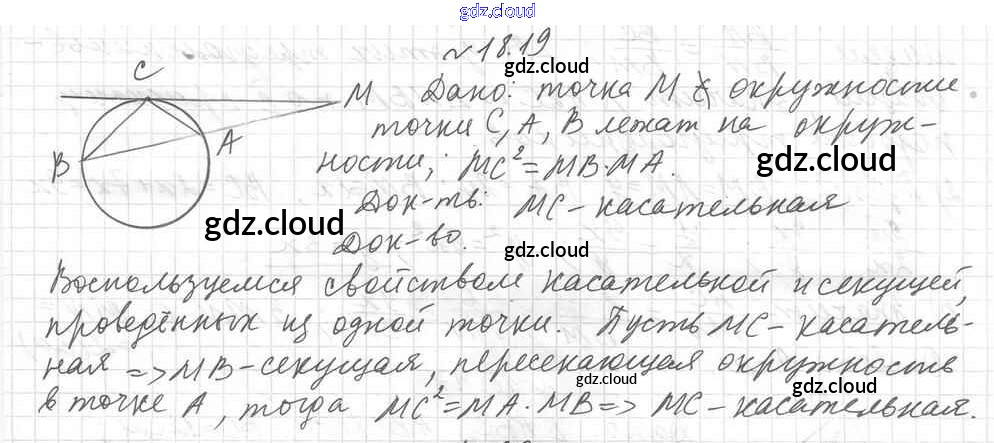 gdz.cloud
№18.19
gdz.cloud
C
M Дано: точка M ∉ окружности
точки C, A, B лежат на окруж-
A
B
ности; MC²=MB·MA.
gdz.cloud
Док-ть: MC-касательная
gdz.cloud
Док-во.
gdz.cloud
Воспользуемся свойством касательной и секущей,
проведённых из одной точки. Пусть MC-касатель-
gdz.cloud
ная => MB-секущая, пересекающая окружность
gdz.cloud
gdz.cloud
в точке A, тогда MC²=MA·MB=> MC-касательная.